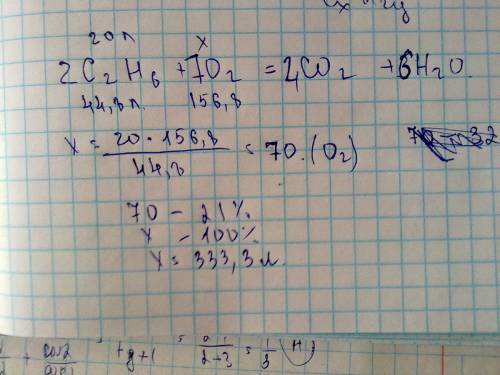 20л x
2C₂H₆ + 7O₂ = 4CO₂ + 6H₂O.
44,8 л. 156,8
x = 20 · 156,8 / 44,8 = 70. (O₂)
70 – 21%
x – 100%
x = 333,3 л.